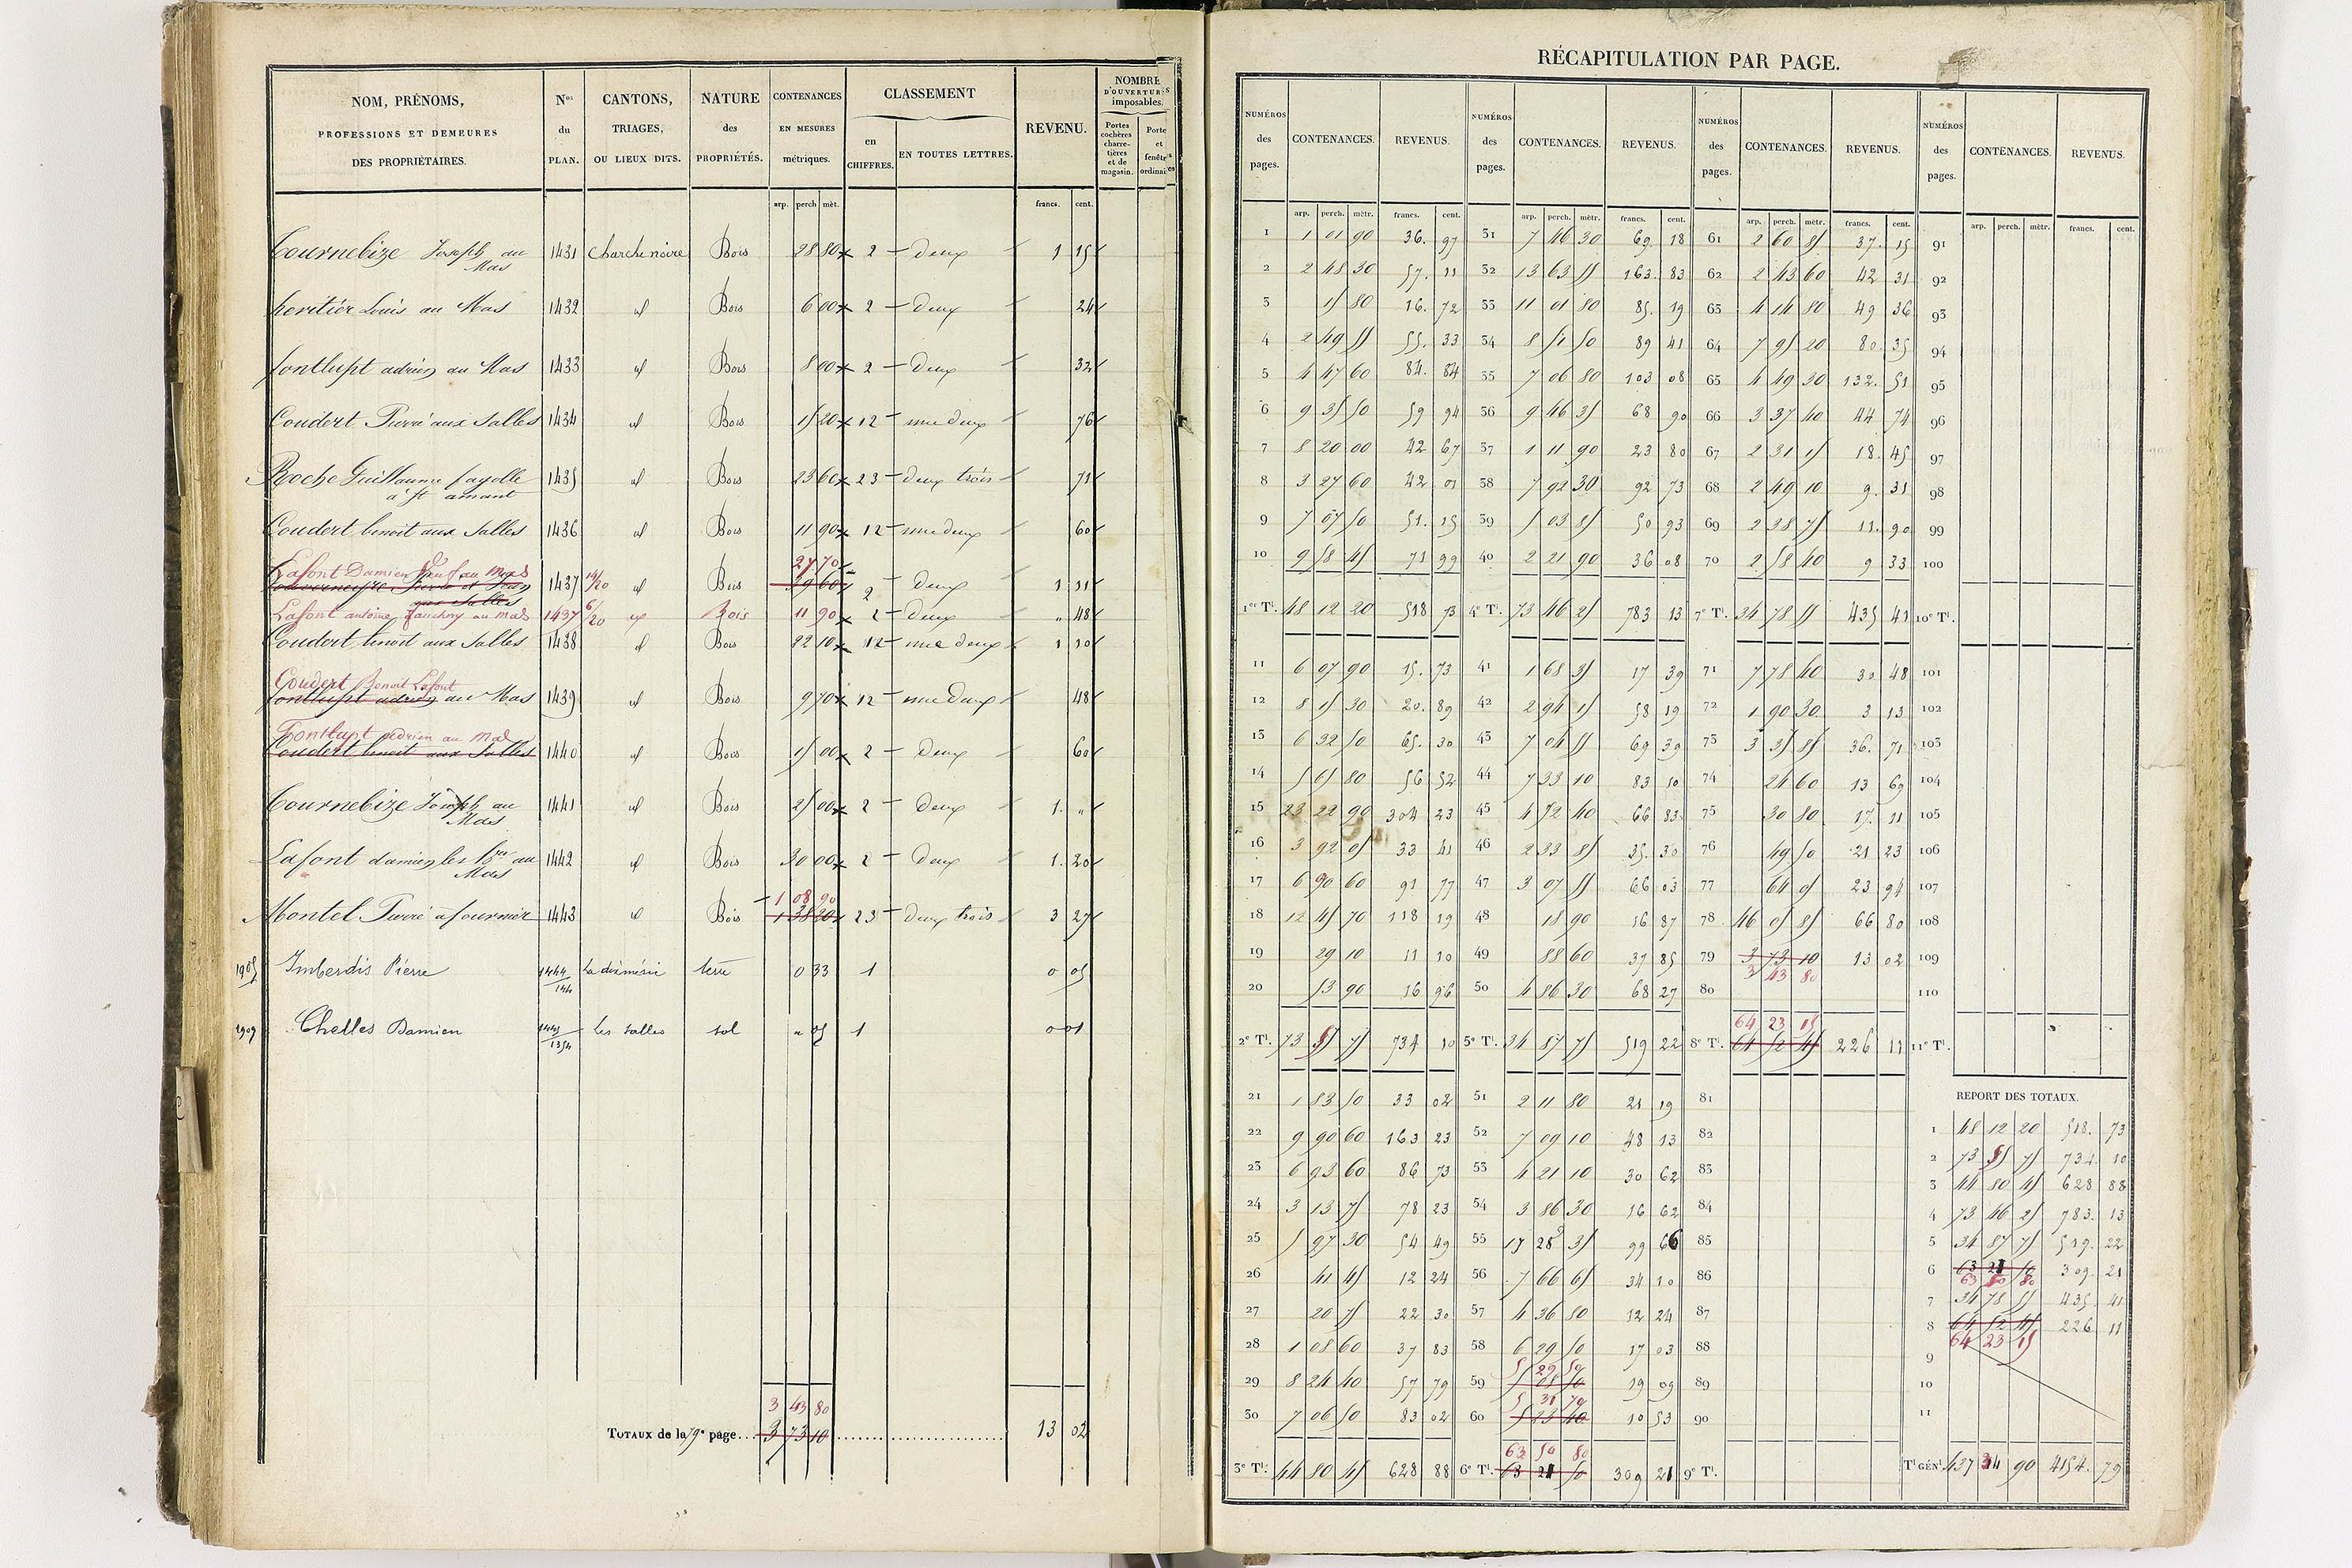 NOM, PRÉNOMS,
PROFESSIONS ET DEMEURES
DES PROPRIÉTAIRES.
Nos du PLAN.
CANTONS, TRIAGES, OU LIEUX DITS.
NATURE des PROPRIÉTÉS.
CONTENANCES EN MESURES métriques.
CLASSEMENT
en CHIFFRES.
EN TOUTES LETTRES.
REVENU.
NOMBRE D'OUVERTURES imposables.
Portes cochères charretières et de magasin.
Porte et fenêtres ordinaires
arp. perch mèt. francs. cent.
Cournebize Joseph au Mas 1431 Charchenoire Bois 28 80 2 deux 1 15
heritier Louis au Mas 1432 id Bois 6 00 2 deux 24
fontlupt adrien au Mas 1433 id Bois 8 00 2 deux 32
Coudert Pierre aux Salles 1434 id Bois 15 20 12 une deux 76
Roche Guillaume fayolle à st amant 1435 id Bois 23 60 23 deux trois 71
Coudert benoit aux Salles 1436 id Bois 11 90 12 une deux 60
27 70
Lafont Damien Neuf au Mas 1437 14/20 id Bois 39 60 2 deux 1 11
aux Salles
Lafont antoine fauchery au mas 1437 6/20 id Bois 11 90 2 Deux " 48
Coudert benoit aux Salles 1438 id Bois 22 10 12 une deux 1 10
Coudert Benoit Lafont
fontlupt adrien au Mas 1439 id Bois 9 70 12 une deux 48
Fontlupt adrien au Mas
Coudert benoit aux Salles 1440 id Bois 15 00 2 deux 60
Cournebize Joseph au Mas 1441 id Bois 25 00 2 deux 1. "
Lafont damien les hers au Mas 1442 id Bois 30 00 2 deux 1. 20
1 08 90
Montel Pierre à fournier 1443 id Bois 1 38 20 23 deux trois 3 27
1905 Imberdis Pierre 1444/144 La diximerie terre 0 33 1 0 05
1909 Chelles Damien 1445/1354 Les Salles sol " 05 1 0 01
3 43 80
TOTAUX de la 79e page... 3 73 10 13 02
RÉCAPITULATION PAR PAGE.
NUMÉROS des pages. CONTENANCES. REVENUS. NUMÉROS des pages. CONTENANCES. REVENUS. NUMÉROS des pages. CONTENANCES. REVENUS. NUMÉROS des pages. CONTENANCES. REVENUS.
arp. perch. mètr. francs. cent. arp. perch. mètr. francs. cent. arp. perch. mètr. francs. cent. arp. perch. mètr. francs. cent.
1 1 01 90 36. 97 31 7 46 30 69. 18 61 2 60 85 37. 15 91
2 2 48 30 57. 11 32 13 63 55 163. 83 62 2 43 60 42 31 92
3 15 80 16. 72 33 11 01 80 85. 19 63 4 14 80 49 36 93
4 2 49 55 55. 33 34 8 51 50 89 41 64 7 95 20 80. 35 94
5 4 47 60 84. 84 35 7 06 80 103 08 65 4 49 30 132. 51 95
6 9 35 50 59 94 36 9 46 35 68 90 66 3 37 40 44 74 96
7 8 20 00 42 67 37 1 11 90 23 80 67 2 31 15 18. 45 97
8 3 27 60 42 01 38 7 92 30 92 73 68 2 49 10 9. 31 98
9 7 07 50 51. 15 39 5 03 85 50 93 69 2 38 75 11. 90 99
10 9 58 45 71 99 40 2 21 90 36 08 70 2 58 40 9 33 100
1er Tl. 48 12 20 518 73 4e Tl. 73 46 25 783 13 7e Tl. 34 78 55 435 41 10e Tl.
11 6 07 90 15. 73 41 1 68 35 17 39 71 7 78 40 30 48 101
12 8 15 30 20. 89 42 2 94 15 58 19 72 1 90 30 3 13 102
13 6 32 50 65. 30 43 7 04 55 69 39 73 3 35 85 36. 71 103
14 5 65 80 56 52 44 7 33 10 83 50 74 24 60 13 69 104
15 23 22 90 304 23 45 4 72 40 66 83 75 30 80 17. 11 105
16 3 92 05 33 41 46 2 33 85 35. 30 76 49 50 21 23 106
17 6 90 60 91 77 47 3 07 55 66 03 77 64 05 23 94 107
18 12 45 70 118 19 48 18 90 16 87 78 46 05 85 66 80 108
19 29 10 11 10 49 88 60 37 85 79 3 73 10 13 02 109
3 43 80
20 53 90 16 96 50 4 86 30 68 27 80 110
64 23 15
2e Tl. 73 55 75 734 10 5e Tl. 34 87 75 519 22 8e Tl. 64 52 45 226 11 11e Tl.
21 1 83 50 33 02 51 2 11 80 21 19 81
22 9 90 60 163 23 52 7 09 10 48 13 82
23 6 93 60 86 73 53 4 21 10 30 62 83
24 3 13 75 78 23 54 3 86 30 16 62 84
25 5 97 30 54 49 55 17 28 35 99 66 85
26 41 45 12 24 56 7 66 65 34 10 86
27 20 75 22 30 57 4 36 80 12 24 87
28 1 08 60 37 83 58 6 29 50 17 03 88
5 29 50
29 8 24 40 57 79 59 5 08 50 19 09 89
5 31 70
30 7 06 50 83 02 60 5 23 40 10 53 90
63 50 80
3e Tl. 44 80 45 628 88 6e Tl. 63 21 50 309 21 9e Tl.
REPORT DES TOTAUX.
1 48 12 20 518. 73
2 73 55 75 734 10
3 44 80 45 628 88
4 73 46 25 783. 13
5 34 87 75 519. 22
6 63 21 50 309. 21
63 50 80
7 34 78 55 435. 41
8 64 52 45 226 11
64 23 15
9
10
11
Tl GÉNl 437 34 90 4154. 79